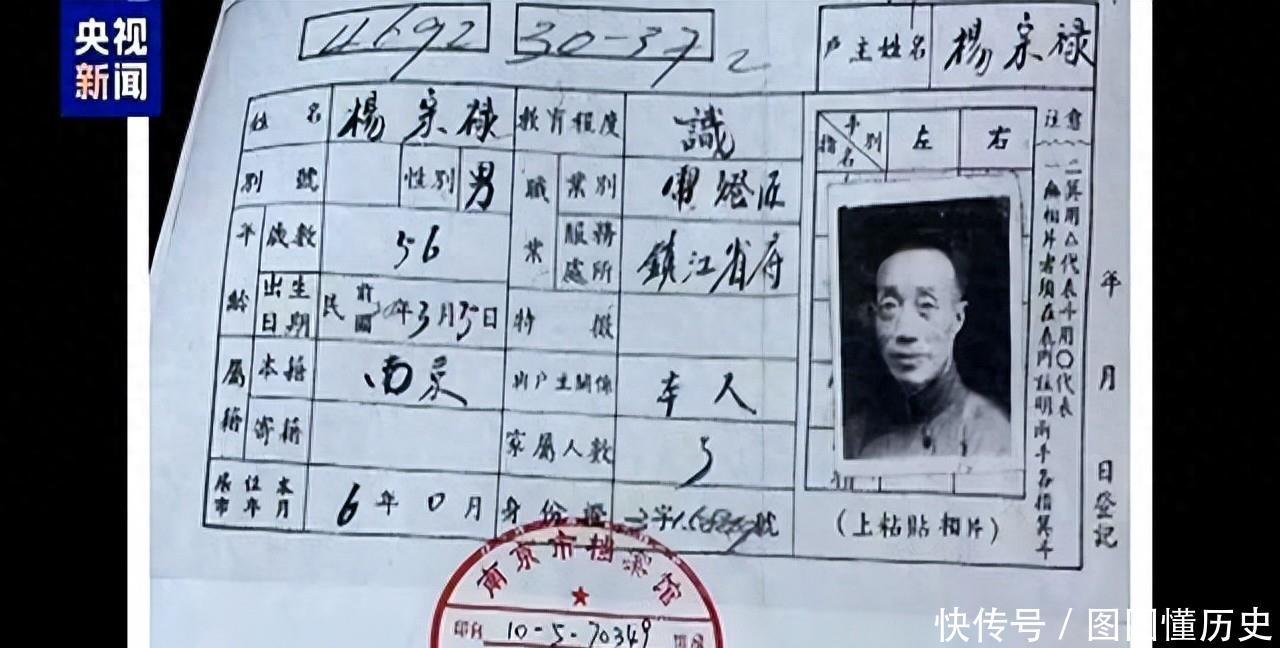 央视
新闻
4692 30-37 2
户主姓名 楊宗禄
姓名 楊宗禄 教育程度 識
別號 性別 男 職業 業別
年齡 歲數 56 服務處所 鎮江省府
出生日期 民國前 年3月 日 特徵
屬籍 本籍 南京 與户主關係 本人
寄籍 家屬人數 5
居住本市年月 6年0月 身份證 字 號
指名 手別 左 右
注意
一無相片者須在表內註明兩手各指箕斗
二箕用△代表斗用〇代表
(上粘貼相片)
年月日登記
南京市档案馆
10-5-70349
快传号/图图懂历史